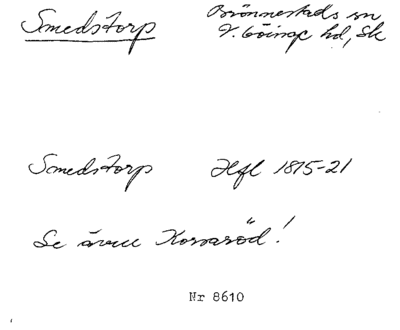 Smedstorp
Brönnestads sn
V. Göinge hd, Sk
Smedstorp Hfl 1815-21
Se även Korsaröd!
Nr 8610